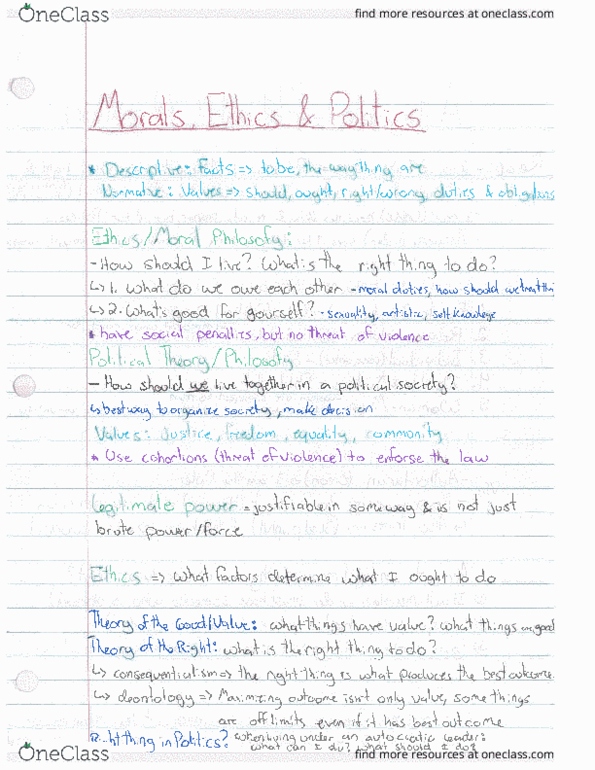 OneClass
find more resources at oneclass.com
Morals, Ethics & Politics
* Descriptive: Facts => to be, the way thing are
Normative: Values => should, ought, right/wrong, duties & obligations
Ethics/Moral Philosofy:
- How should I live? What is the right thing to do?
↳ 1. What do we owe each other - moral duties, how should we treat thi
↳ 2. What's good for yourself? - sexuality, artistic, self knowlege
* have social penalties, but no threat of violence
Political Theory/Philosofy
- How should we live together in a political socrety?
↳ best way to organize socrety, make decision
Values: Justice, freedom, equality, commonity
* Use cohortions (threat of violence) to enforse the law
Legitimate power = justifiable in some way & is not just
brute power/force
Ethics => what factors determine what I ought to do
Theory of the Good/Value: what things have value? what things are good
Theory of the Right: what is the right thing to do?
↳ consequenticatism => the right thing is what produces the best outcome.
↳ deontology => Maximizing outcome isn't only value, some things
are off limits even if it has best outcome
Right thing in Politics? when living under an autocratic leader:
what can I do? what should I do?
OneClass
find more resources at oneclass.com